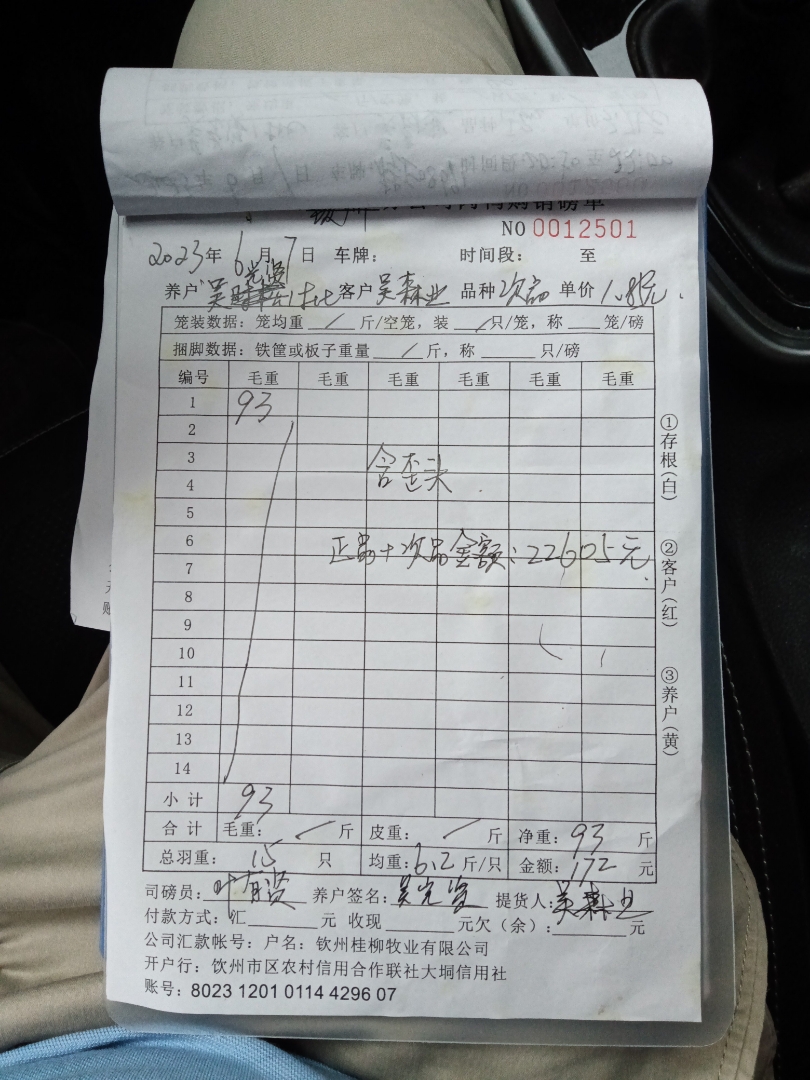 NO 0012501
2023年 6月 7日 车牌： 时间段： 至
养户 吴 客户 吴森业 品种 次品 单价 1.85元
笼装数据：笼均重 / 斤/空笼，装 / 只/笼，称 笼/磅
捆脚数据：铁筐或板子重量 / 斤，称 只/磅
编号 毛重 毛重 毛重 毛重 毛重 毛重
1 93
2
3 含歪头
4
5
6 正品+次品金额：22605元
7
8
9
10
11
12
13
14
小计 93
合计 毛重： / 斤 皮重： / 斤 净重：93 斤
总羽重： 15 只 均重：6.2 斤/只 金额：172 元
司磅员： 养户签名： 提货人：吴森业
付款方式：汇 元 收现 元欠（余）： 元
公司汇款帐号：户名：钦州桂柳牧业有限公司
开户行：钦州市区农村信用合作联社大垌信用社
账号：8023 1201 0114 4296 07
①存根(白)
②客户(红)
③养户(黄)